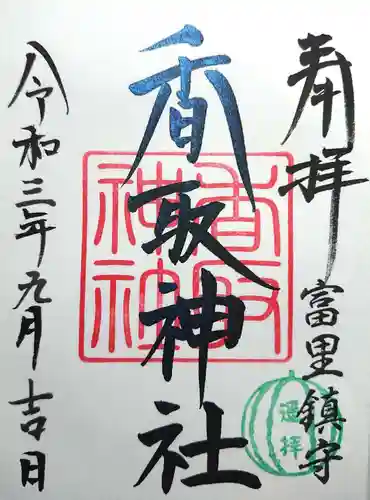 奉拝
富里鎮守
香取神社
令和三年九月吉日
香取神社
遥拝